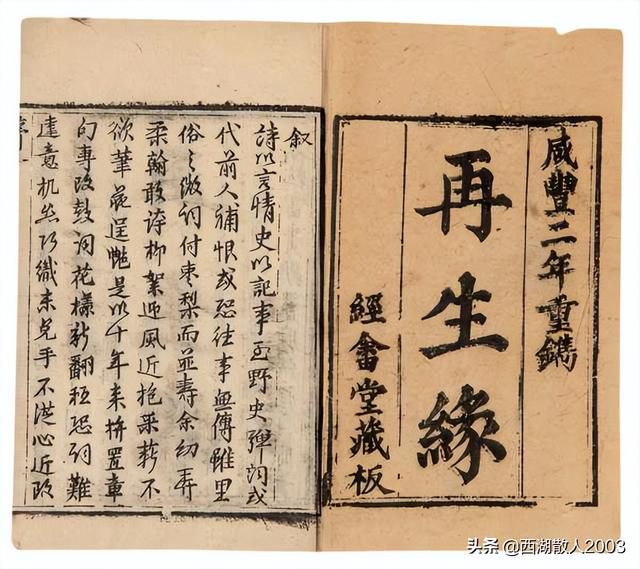 咸豐二年重鐫
再生緣
經畬堂藏板
叙
詩以言情史以記事至野史彈詞或
代前人補恨或恐往事無傳雖里
俗之微詞付枣梨而並壽余幼弄
柔翰敢誇柳絮迎風近抱采薪不
欲筆花逞艷是以十年来拚置章
句專改鼓詞花樣新翻秪恐詞難
達意机絲巧織未免手不從心近改
头条 @西湖散人2003